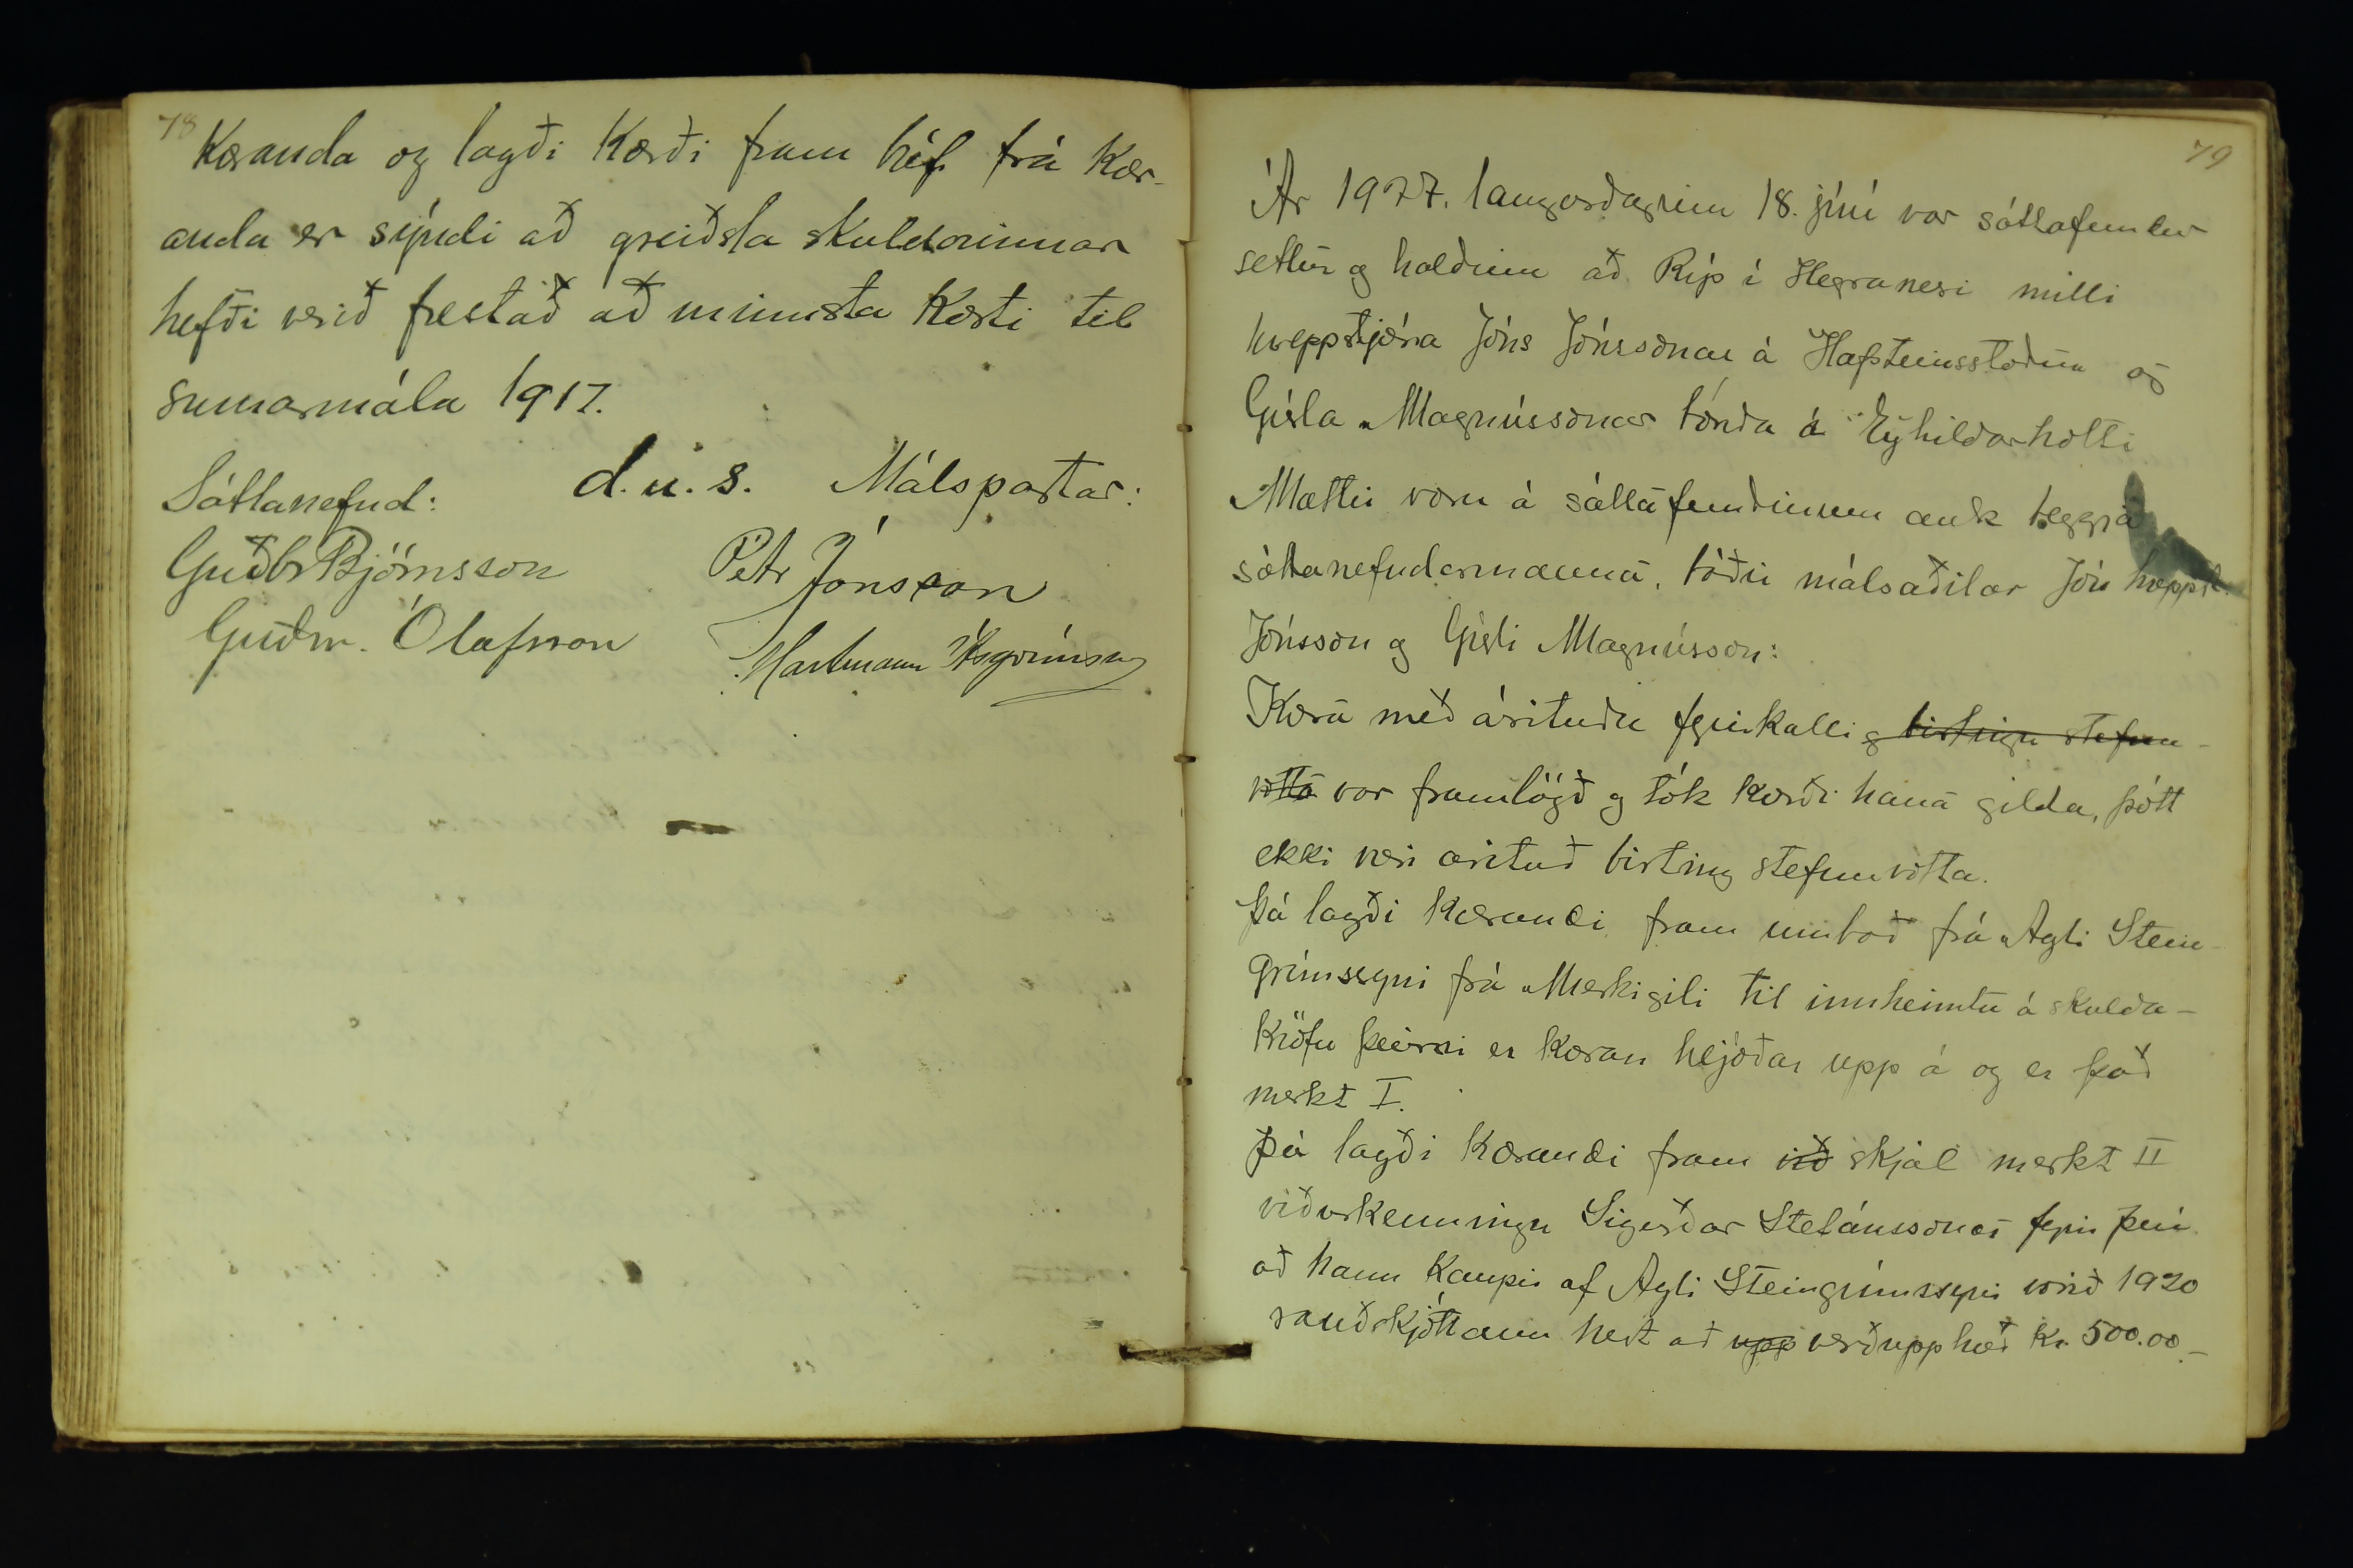 78
Kæranda og lagði Kærði fram bréf frá Kær-
anda er sýndi að greiðsla skuldarinnar
hefði verið frestað að minnsta Kosti til
sumarmála 1917.
d.u.s.
Sáttanefnd:
Guðbr Björnsson
Guðm. Ólafsson
Málspartar:
Pétr Jónsson
Hartmann Ásgrímsson
79
Ár 1927. laugardaginn 18. júní var sáttafundur
settur og haldinn að Ríp í Hegranesi milli
hreppstjóra Jóns Jónssonar á Hafsteinsstöðum og
Gísla Magnússonar bónda á Eyhildarholti
Mættir voru á sáttafundinum auk beggja
sáttanefndarmanna, báðir málsaðilar Jón hreppst.
Jónsson og Gísli Magnússon:
Kæra með árituðu fyrirkalli og birtingu stefnu-
votta var framlögð og tók kærði hana gilda, þótt
ekki væri árituð birting stefnuvotta.
Þá lagði Kærandi fram umboð frá Agli Stein-
grímssyni frá Merkigili til innheimtu á skulda-
kröfu þeirri er kæran hljóðar upp á og er það
merkt I.
Þá lagði Kærandi fram við skjal merkt II
viðurkenningu Sigurðar Stefánssonar fyrir því
að hann Kaupir af Agli Steingrímssyni vorið 1920
rauðskjóttann hest að upp verðupphæð Kr. 500.00-